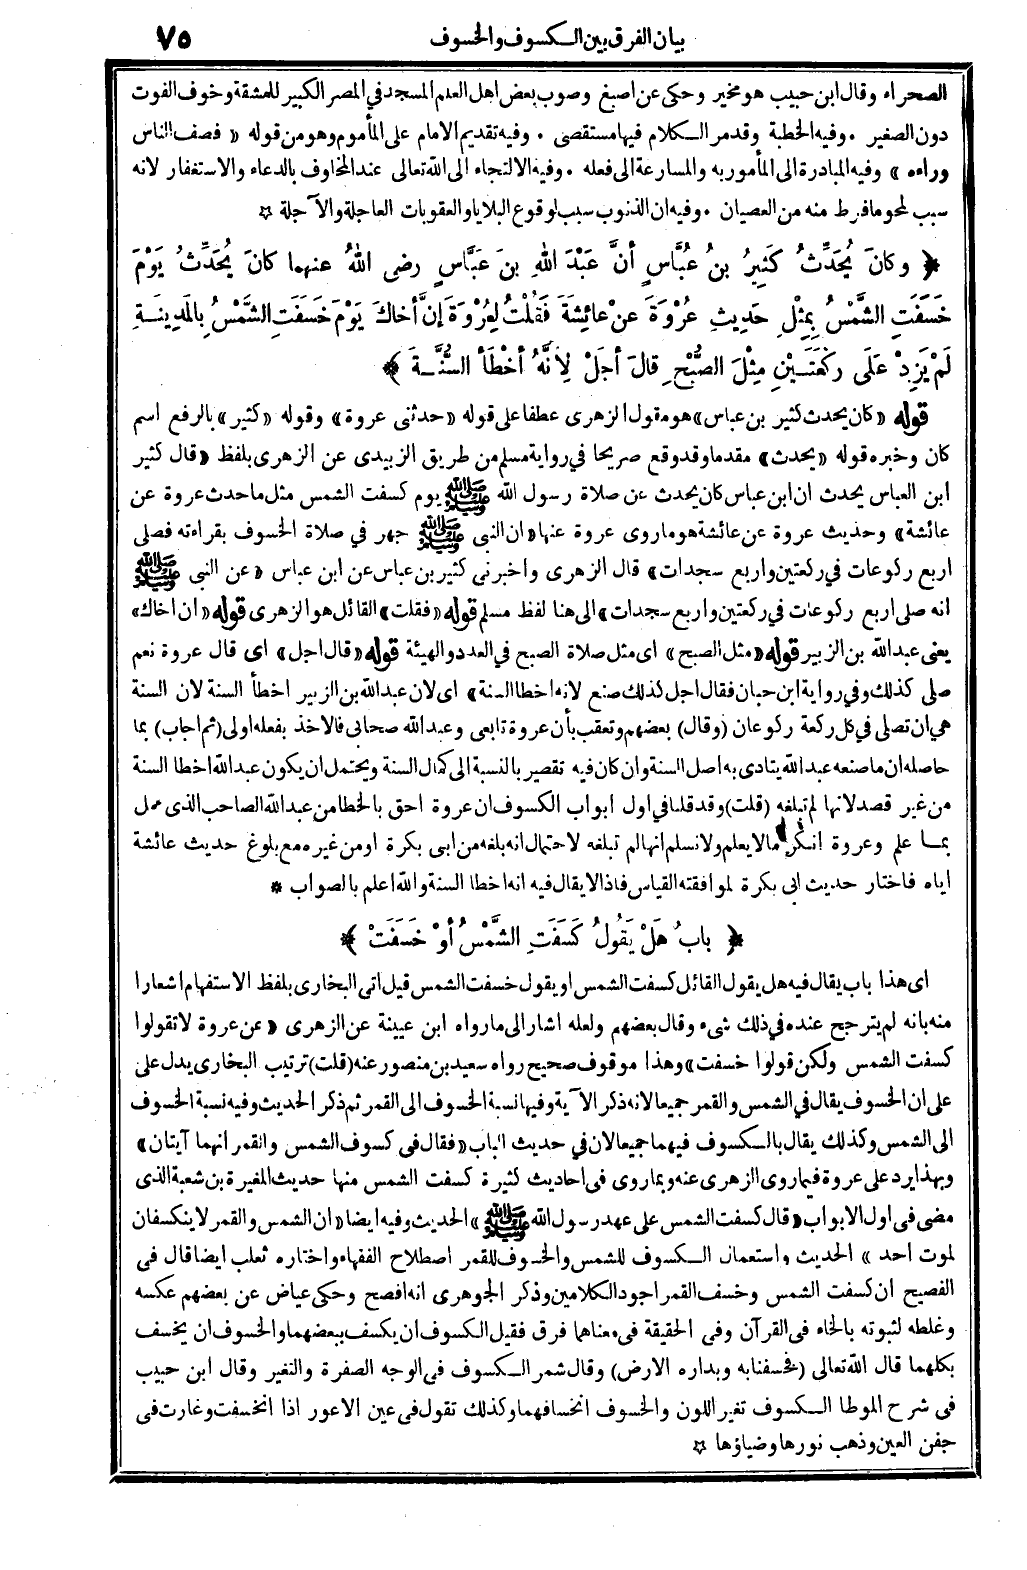 بيان الفرق بين الكسوف والخسوف ٧٥
الصحراء وقال ابن حبيب هو مخير وحكى عن اصبغ وصوب بعض اهل العلم المسجد في المصر الكبير للمشقة وخوف الفوت
دون الصغير . وفيه الخطبة وقد مر الكلام فيها مستقصى . وفيه تقديم الامام على المأموم وهو من قوله « فصف الناس
وراءه » وفيه المبادرة الى المأمور به والمسارعة الى فعله . وفيه الالتجاء الى الله تعالى عند المخاوف بالدعاء والاستغفار لانه
سبب لمحو ما فرط منه من العصيان . وفيه ان الذنوب سبب لوقوع البلايا والعقوبات العاجلة والآجلة ☆
﴿ وكانَ يُحَدِّثُ كَثِيرُ بنُ عُبَّاسٍ أنَّ عَبْدَ اللهِ بنَ عَبَّاسٍ رضى اللهُ عنهما كانَ يُحَدِّثُ يَوْمَ
خَسَفَتِ الشَّمْسُ بِمِثْلِ حَدِيثِ عُرْوَةَ عنْ عائِشَةَ فَقُلْتُ لِعُرْوَةَ إنَّ أخاكَ يَوْمَ خَسَفَتِ الشَّمْسُ بِالمَدِينَةِ
لَمْ يَزِدْ عَلَى رَكْعَتَيْنِ مِثْلَ الصُّبْحِ قالَ أجَلْ لِأنَّهُ أخْطَأ السُّنَّةَ ﴾
قوله « كان يحدث كثير بن عباس » هو مقول الزهرى عطفا على قوله « حدثنى عروة » وقوله « كثير » بالرفع اسم
كان وخبره قوله « يحدث » مقدما وقد وقع صريحا في رواية مسلم من طريق الزبيدى عن الزهرى بلفظ « قال كثير
ابن العباس يحدث ان ابن عباس كان يحدث عن صلاة رسول الله ﷺ يوم كسفت الشمس مثل ما حدث عروة عن
عائشة » وحديث عروة عن عائشة هو ما روى عروة عنها « ان النبى ﷺ جهر في صلاة الخسوف بقراءته فصلى
اربع ركوعات في ركعتين واربع سجدات » قال الزهرى واخبرنى كثير بن عباس عن ابن عباس « عن النبى ﷺ
انه صلى اربع ركوعات في ركعتين واربع سجدات » الى هنا لفظ مسلم قوله « فقلت » القائل هو الزهرى قوله « ان اخاك »
يعنى عبد الله بن الزبير قوله « مثل الصبح » اى مثل صلاة الصبح في العدد والهيئة قوله « قال اجل » اى قال عروة نعم
صلى كذلك وفي رواية ابن حبان فقال اجل كذلك صنع لانه اخطا السنة » اى لان عبد الله بن الزبير اخطأ السنة لان السنة
هى ان تصلى في كل ركعة ركوعان (وقال) بعضهم وتعقب بأن عروة تابعى وعبد الله صحابى فالاخذ بفعله اولى (ثم اجاب) بما
حاصله ان ما صنعه عبد الله يتادى به اصل السنة وان كان فيه تقصير بالنسبة الى كمال السنة ويحتمل ان يكون عبد الله اخطا السنة
من غير قصد لانها لم تبلغه (قلت) وقد قلنا في اول ابواب الكسوف ان عروة احق بالخطا من عبد الله الصاحب الذى عمل
بما علم وعروة انكر ما لا يعلم ولا نسلم انها لم تبلغه لاحتمال انه بلغه من ابى بكرة او من غيره مع بلوغ حديث عائشة
اياه فاختار حديث ابى بكرة لموافقته القياس فاذا لا يقال فيه انه اخطا السنة والله اعلم بالصواب *
﴿ بابُ هَلْ يَقُولُ كَسَفَتِ الشَّمْسُ أوْ خَسَفَتْ ﴾
اى هذا باب يقال فيه هل يقول القائل كسفت الشمس او يقول خسفت الشمس قيل اتى البخارى بلفظ الاستفهام اشعارا
منه بانه لم يترجح عنده في ذلك شىء وقال بعضهم ولعله اشار الى ما رواه ابن عيينة عن الزهرى « عن عروة لا تقولوا
كسفت الشمس ولكن قولوا خسفت » وهذا موقوف صحيح رواه سعيد بن منصور عنه (قلت) ترتيب البخارى يدل على
على ان الخسوف يقال في الشمس والقمر جميعا لانه ذكر الآية وفيها نسبة الخسوف الى القمر ثم ذكر الحديث وفيه نسبة الخسوف
الى الشمس وكذلك يقال بالكسوف فيهما جميعا لان في حديث الباب « فقال فى كسوف الشمس والقمر انهما آيتان »
وبهذا يرد على عروة فيما روى الزهرى عنه وبما روى فى احاديث كثيرة كسفت الشمس منها حديث المغيرة بن شعبة الذى
مضى فى اول الابواب « قال كسفت الشمس على عهد رسول الله ﷺ » الحديث وفيه ايضا « ان الشمس والقمر لا ينكسفان
لموت احد » الحديث واستعمال الكسوف للشمس والخسوف للقمر اصطلاح الفقهاء واختاره ثعلب ايضا قال فى
الفصيح ان كسفت الشمس وخسف القمر اجود الكلامين وذكر الجوهرى انه افصح وحكى عياض عن بعضهم عكسه
وغلطه لثبوته بالخاء فى القرآن وفى الحقيقة فى معناهما فرق فقيل الكسوف ان يكسف ببعضهما والخسوف ان يخسف
بكلهما قال الله تعالى (فخسفنا به وبداره الارض) وقال شمر الكسوف فى الوجه الصفرة والتغير وقال ابن حبيب
فى شرح الموطا الكسوف تغير اللون والخسوف انخسافهما وكذلك تقول فى عين الاعور اذا انخسفت وغارت فى
جفن العين وذهب نورها وضياؤها ☆